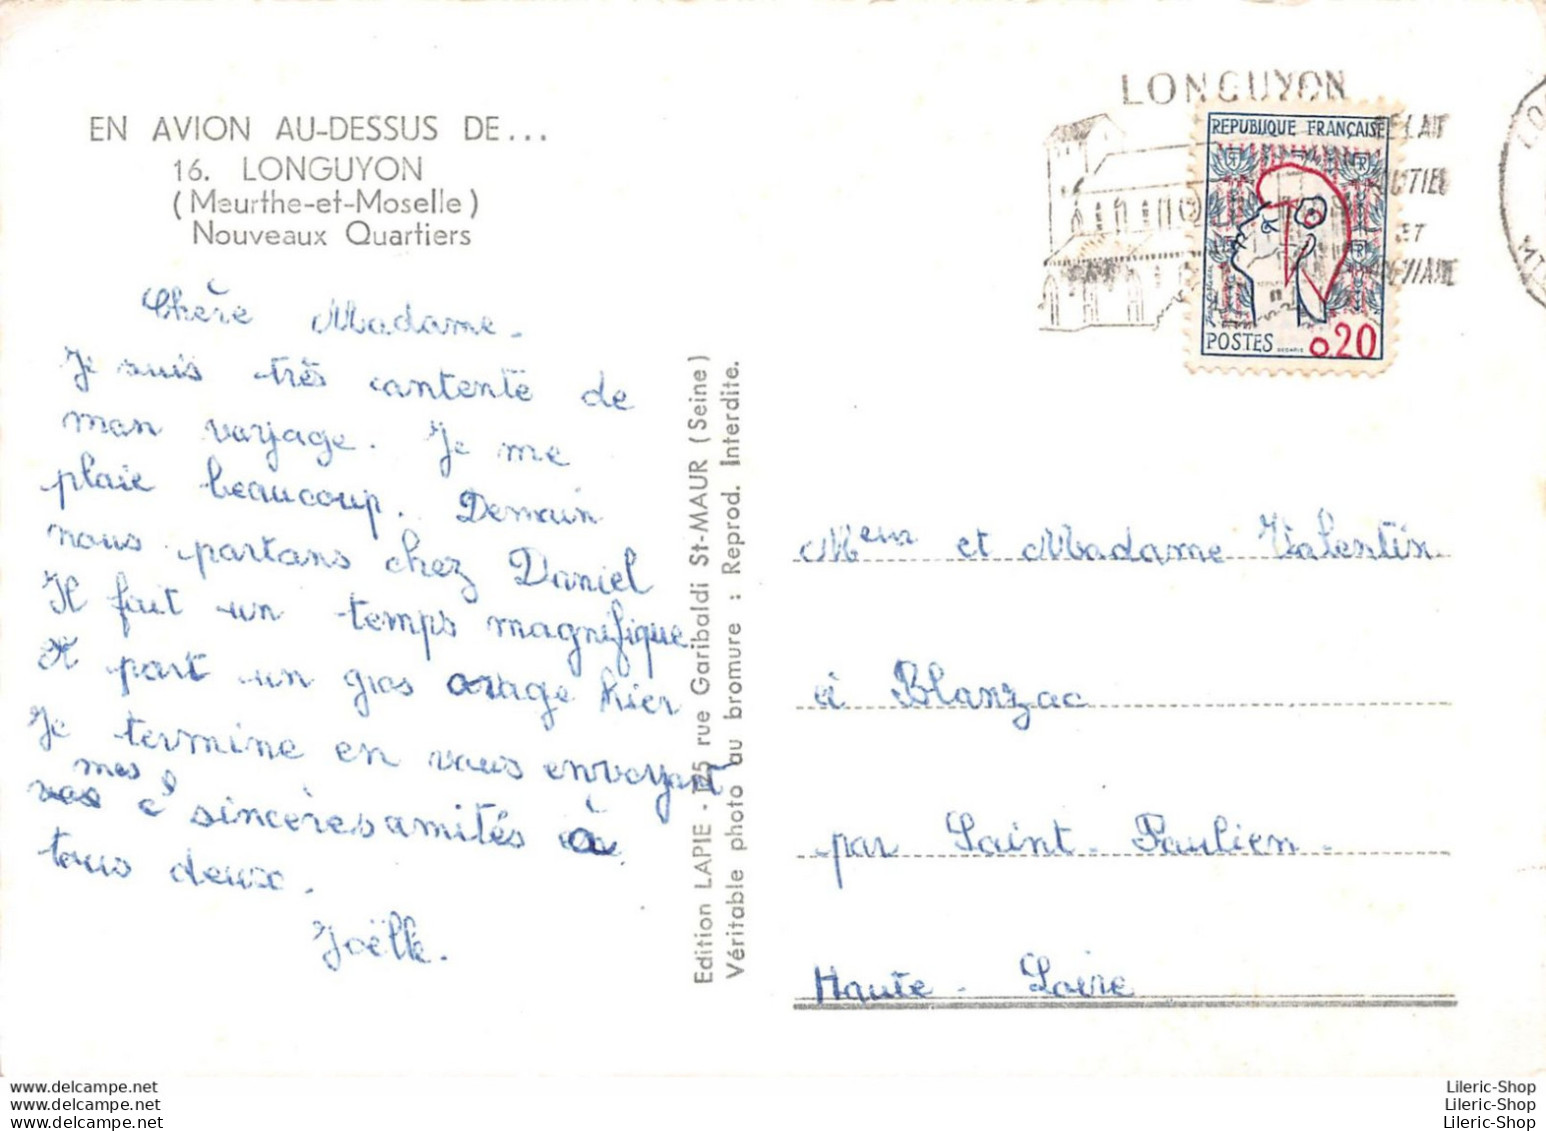 EN AVION AU-DESSUS DE...
16. LONGUYON
(Meurthe-et-Moselle)
Nouveaux Quartiers
Chère Madame.
Je suis très contente de
mon voyage. Je me
plaie beaucoup. Demain
nous partons chez Daniel
Il fait un temps magnifique
Il part un gros orage hier
Je termine en vous envoyant
mes
sincères amités à
tous deux.
Joëlle.
Edition LAPIE - 125 rue Garibaldi St-MAUR (Seine)
Véritable photo au bromure : Reprod. Interdite.
LONGUYON
RELAIT
ET
REPUBLIQUE FRANÇAISE
POSTES 0,20
Meur et Madame Valentin
à Blanzac
par Saint-Paulien.
Haute-Loire
www.delcampe.net
www.delcampe.net
www.delcampe.net
Lileric-Shop
Lileric-Shop
Lileric-Shop